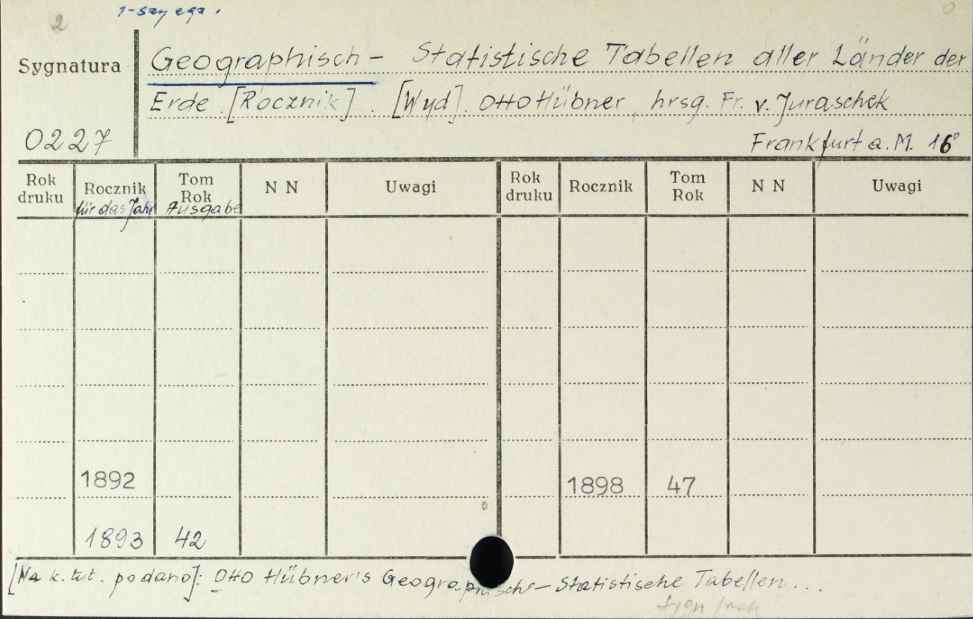 2
1-szy egz.
Sygnatura
Geographisch - Statistische Tabellen aller Länder der
Erde. [Rocznik]. [Wyd]. Otto Hübner, hrsg. Fr. v. Juraschek
0227
Frankfurt a. M. 16°
Rok druku Rocznik für das Jahr Tom Rok Ausgabe N N Uwagi Rok druku Rocznik Tom Rok N N Uwagi
1892 1898 47
1893 42
[Na k. tyt. podano]: Otto Hübner's Geographisch - Statistische Tabellen...